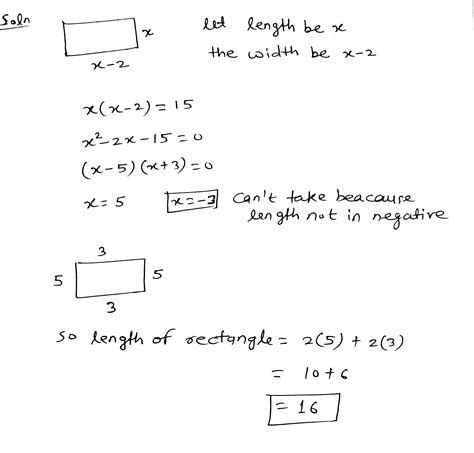 Soln
x
let length be x
x-2
the width be x-2
x(x-2) = 15
x²-2x-15=0
(x-5)(x+3)=0
x=5 x=-3 can't take beacause
length not in negative
3
5 5
3
so length of rectangle = 2(5) + 2(3)
= 10+6
= 16